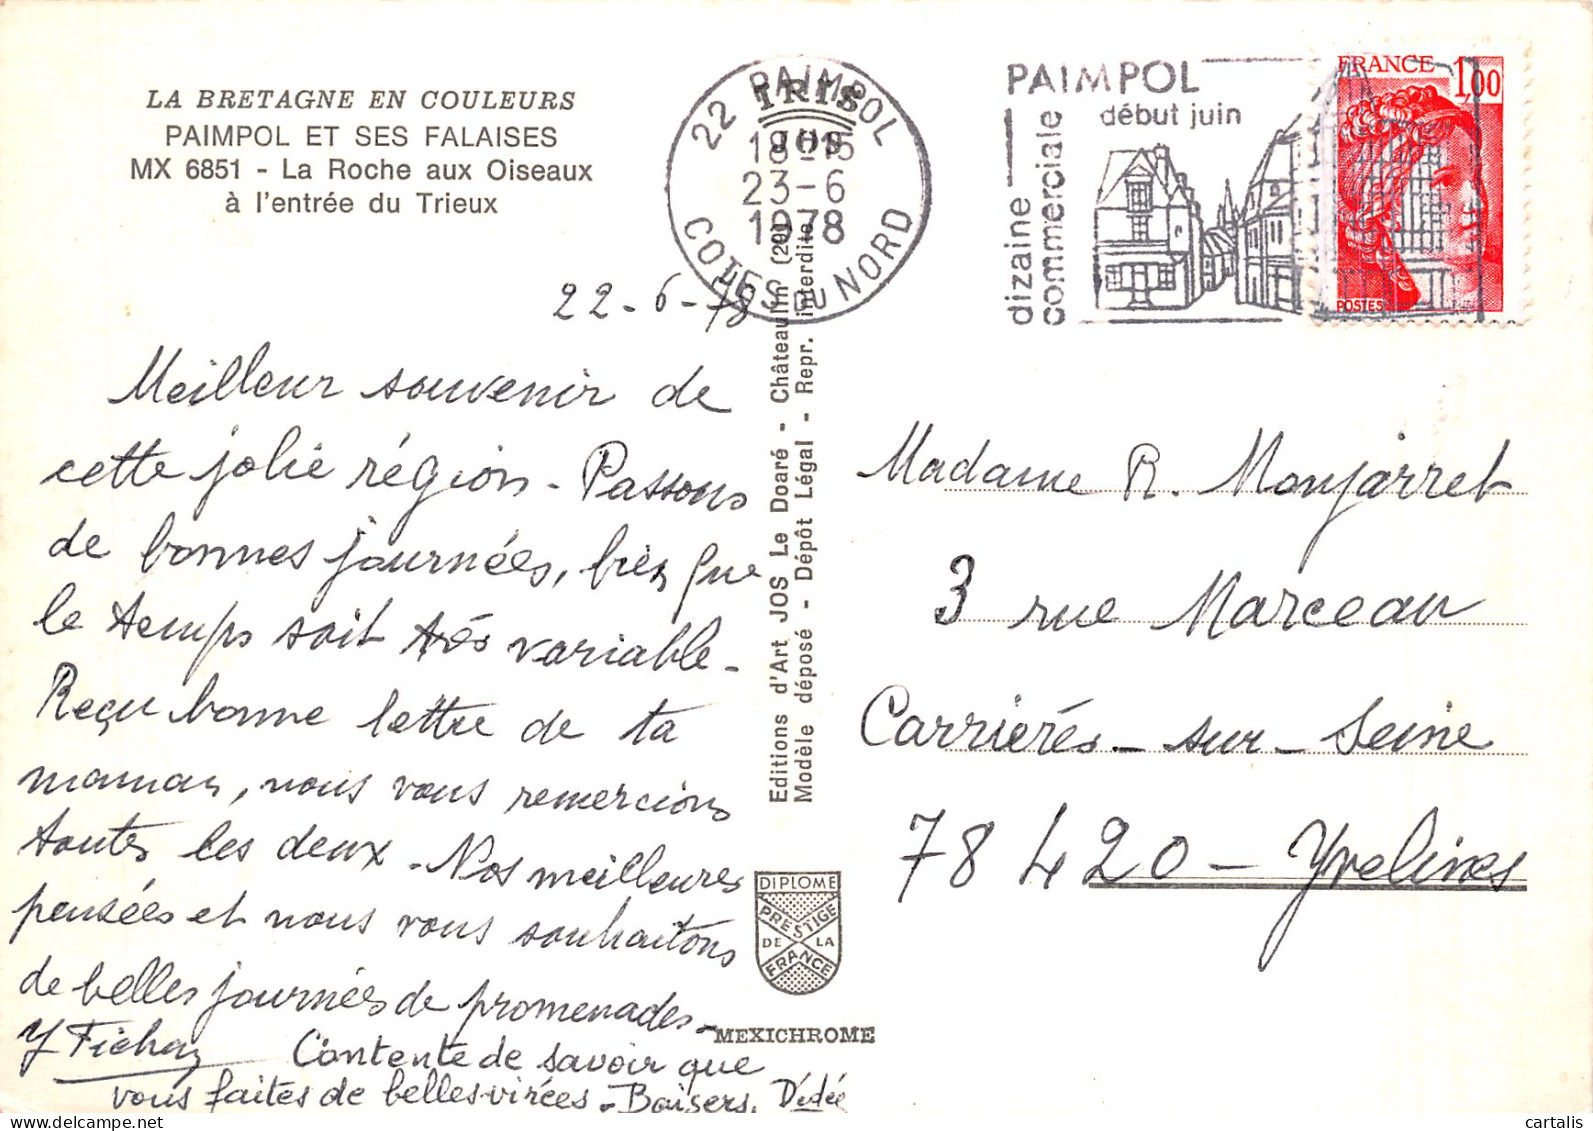 LA BRETAGNE EN COULEURS
PAIMPOL ET SES FALAISES
MX 6851 - La Roche aux Oiseaux
à l'entrée du Trieux
22 PAIMPOL
IRIS
JOS
18H15
23-6
1978
COTES DU NORD
PAIMPOL
début juin
dizaine
commerciale
FRANCE 1,00
POSTES
22-6-78
Meilleur souvenir de
cette jolie région - Passons
de bonnes journées, bien que
le temps soit très variable -
Reçu bonne lettre de ta
maman, nous vous remercions
toutes les deux - Nos meilleures
pensées et nous vous souhaitons
de belles journées de promenades -
Y Fichou
Contente de savoir que
vous faites de belles virées - Baisers. Dédée
Editions d'Art JOS Le Doaré - Châteaulin (29)
Modèle déposé - Dépôt Légal - Repr. interdite
DIPLOME
PRESTIGE
DE LA
FRANCE
MEXICHROME
Madame R. Monjarret
3 rue Marceau
Carrières-sur-Seine
78420 - Yvelines
cartalis
delcampe.net